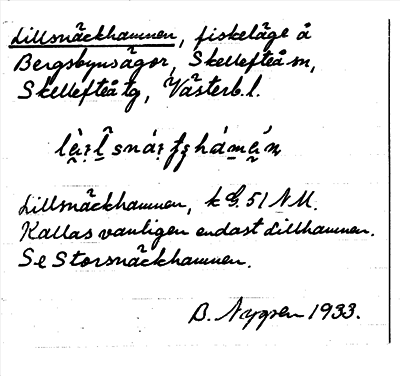 Lillsnäckhamnen, fiskeläge å
Bergsbynsägor, Skellefteå sn,
Skellefteå tg, Västerb.l.
Lillsnäckhamnen, k G. 51 NM.
Kallas vanligen endast Lillhamnen.
Se Storsnäckhamnen.
B. Nygren 1933.